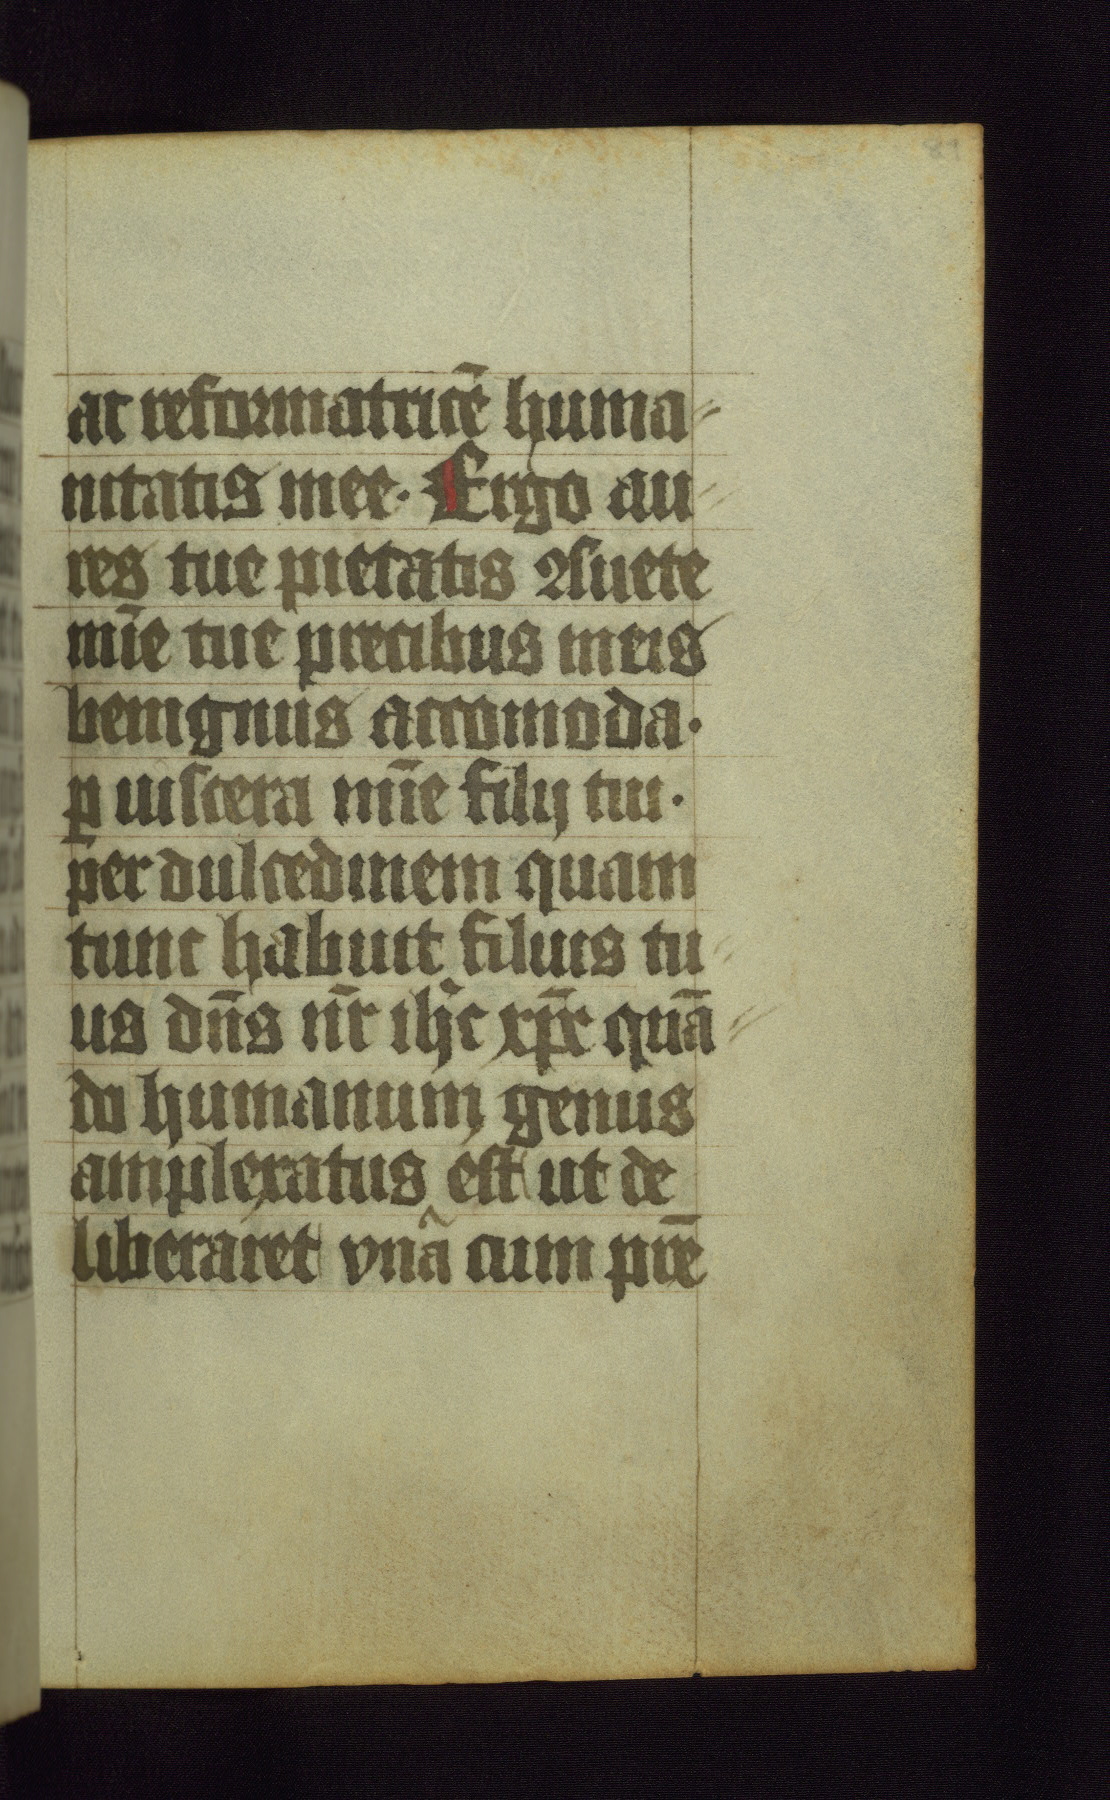 89
ac reformatricē huma
nitatis mee. Ergo au
res tue pietatis ꝯsuete
mīe tue precibus meis
benignus accomoda.
ꝑ uiscera mīe filij tui.
per dulcedinem quam
tunc habuit filius tu
us dn̄s nr̄ ihc̄ xp̄c quā
do humanum genus
amplexatus est ut de
liberaret vnā cum pr̄e